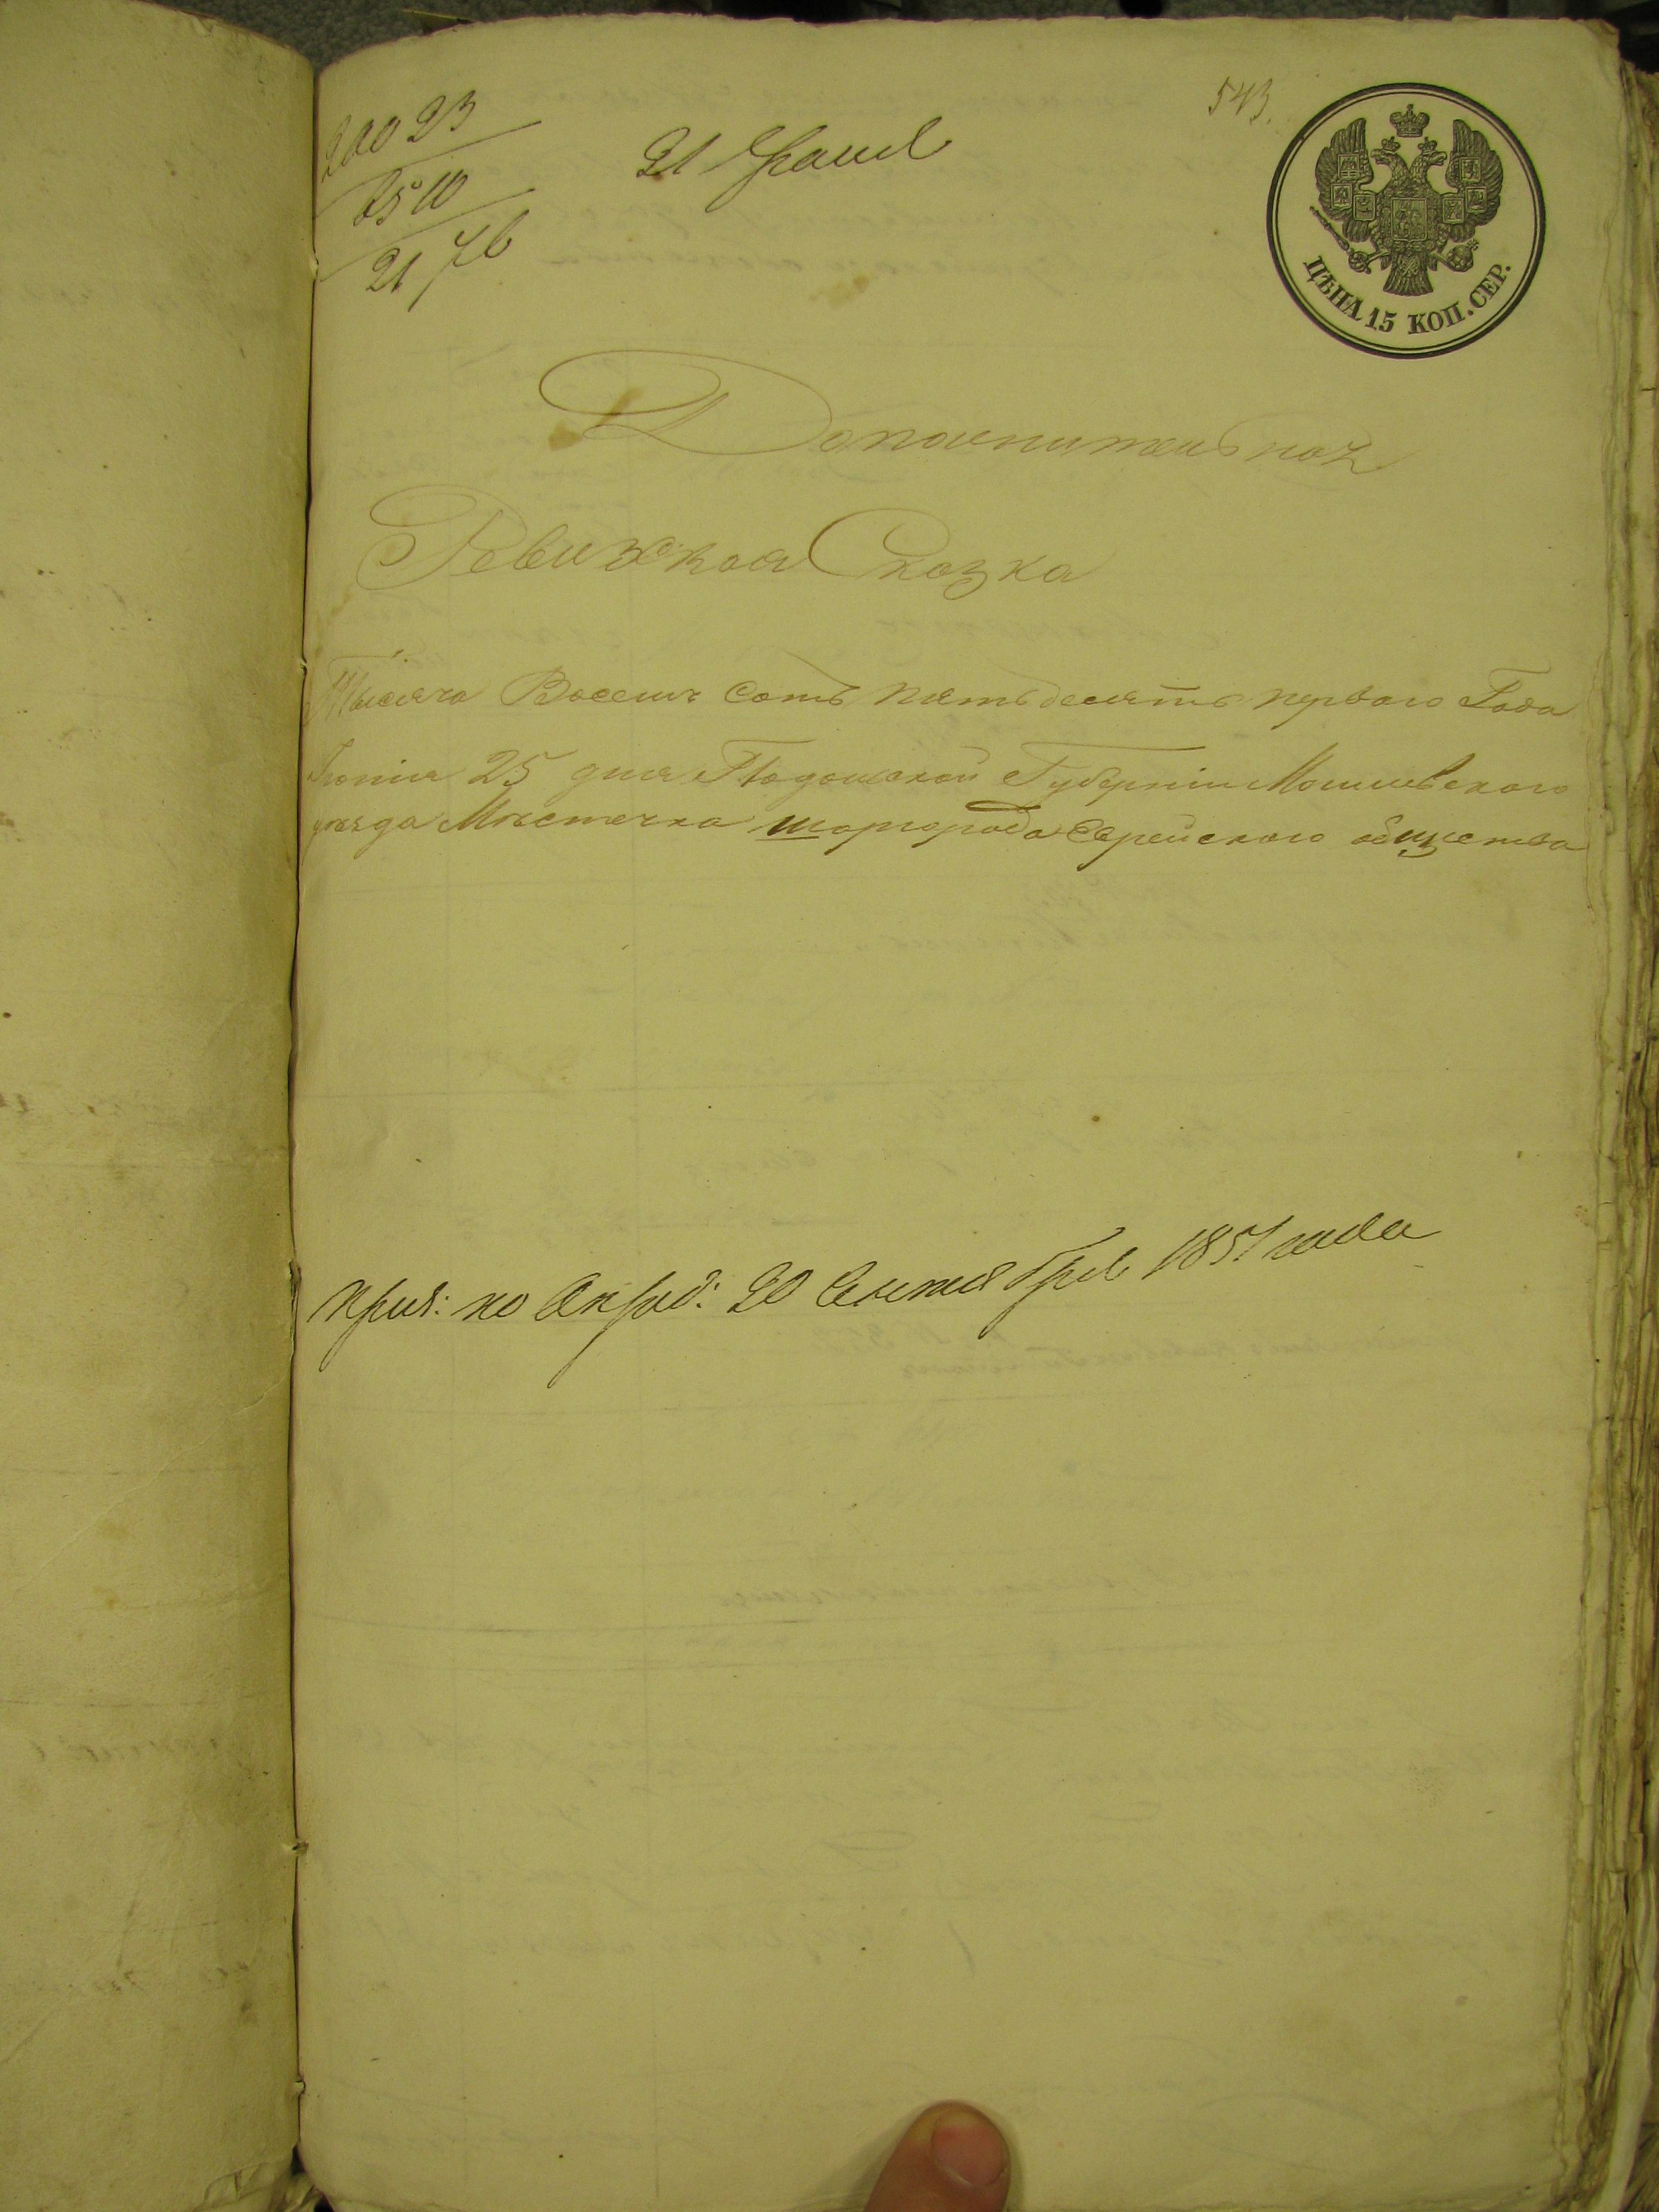 543.
21
ЦѢНА 15 КОП. СЕР.
Дополнительная
Ревижская Сказка
Тысяча Восемь Сотъ пятьдесятъ первого Года
25 дня Подольской Губерніи Могилевского
уѣзда Мѣстечка Шаргорода Еврейского общества
20 Сентября 1851 года